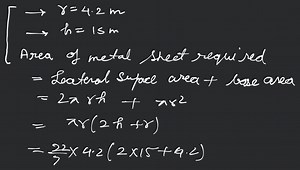 → r = 4.2 m
→ h = 15 m
Area of metal sheet required
= Lateral surface area + base area
= 2πrh + πr²
= πr(2h+r)
= 22/7 × 4.2 (2×15+4.2)